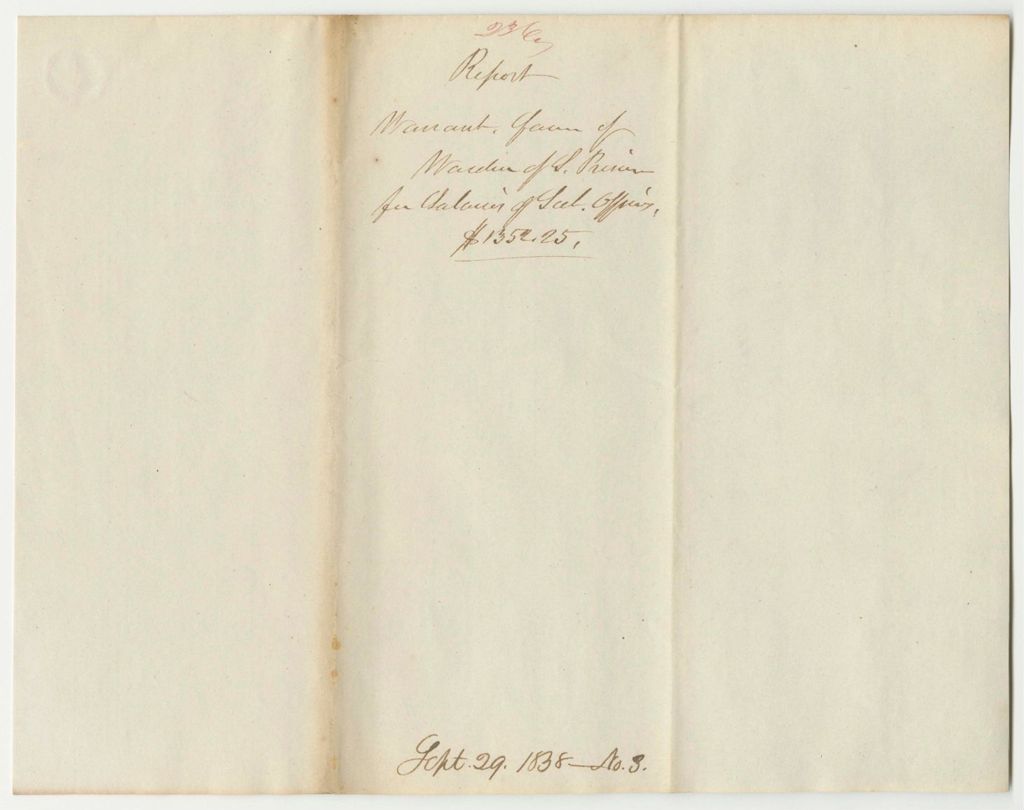 Report
Warrant, favor of
Warden of S. Prison
for Salaries of Sub. Officers,
$1352.25.
Sept. 29. 1838—No. 3.